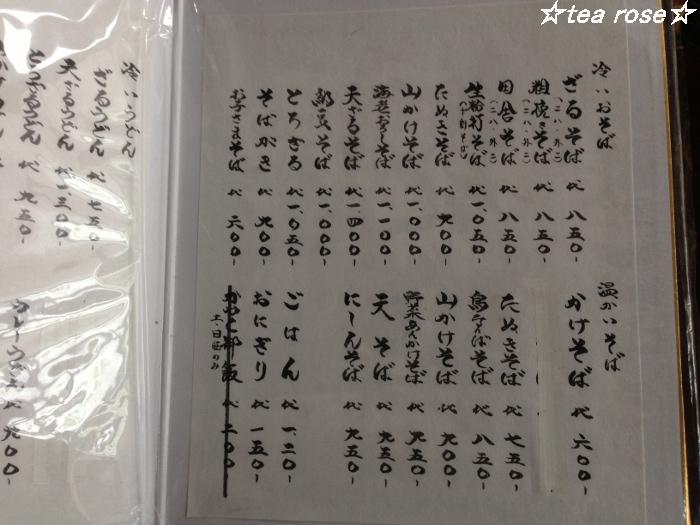 ☆tea rose☆
冷いおそば
ざるそば 代 八五〇-
粗挽きそば 代 八五〇-
(二八・外二)
田舎そば 代 八五〇-
(二八・外二)
生粉打そば 代 一、〇五〇-
(十割そば)
たぬきそば 代 九〇〇-
山かけそば 代 一、〇〇〇-
海老おろしそば 代 一、一〇〇-
天ざるそば 代 一、四〇〇-
納豆そば 代 一、〇〇〇-
とろざる 代 一、〇五〇-
そばがき 代 九〇〇-
お子さまそば 代 六〇〇-
温かいそば
かけそば 代 六〇〇-
たぬきそば 代 七五〇-
鳥そば 代 八五〇-
山かけそば 代 九〇〇-
野菜あんかけそば 代 九五〇-
天そば 代 九五〇-
にしんそば 代 九五〇-
ごはん 代 一、二〇-
おにぎり 代 一五〇-
代 二〇〇-
土・日・祝のみ
冷いうどん
ざるうどん 代 七五〇-
天ざるうどん 代 一、三〇〇-
代 九五〇-
カレーうどん 代 九〇〇-